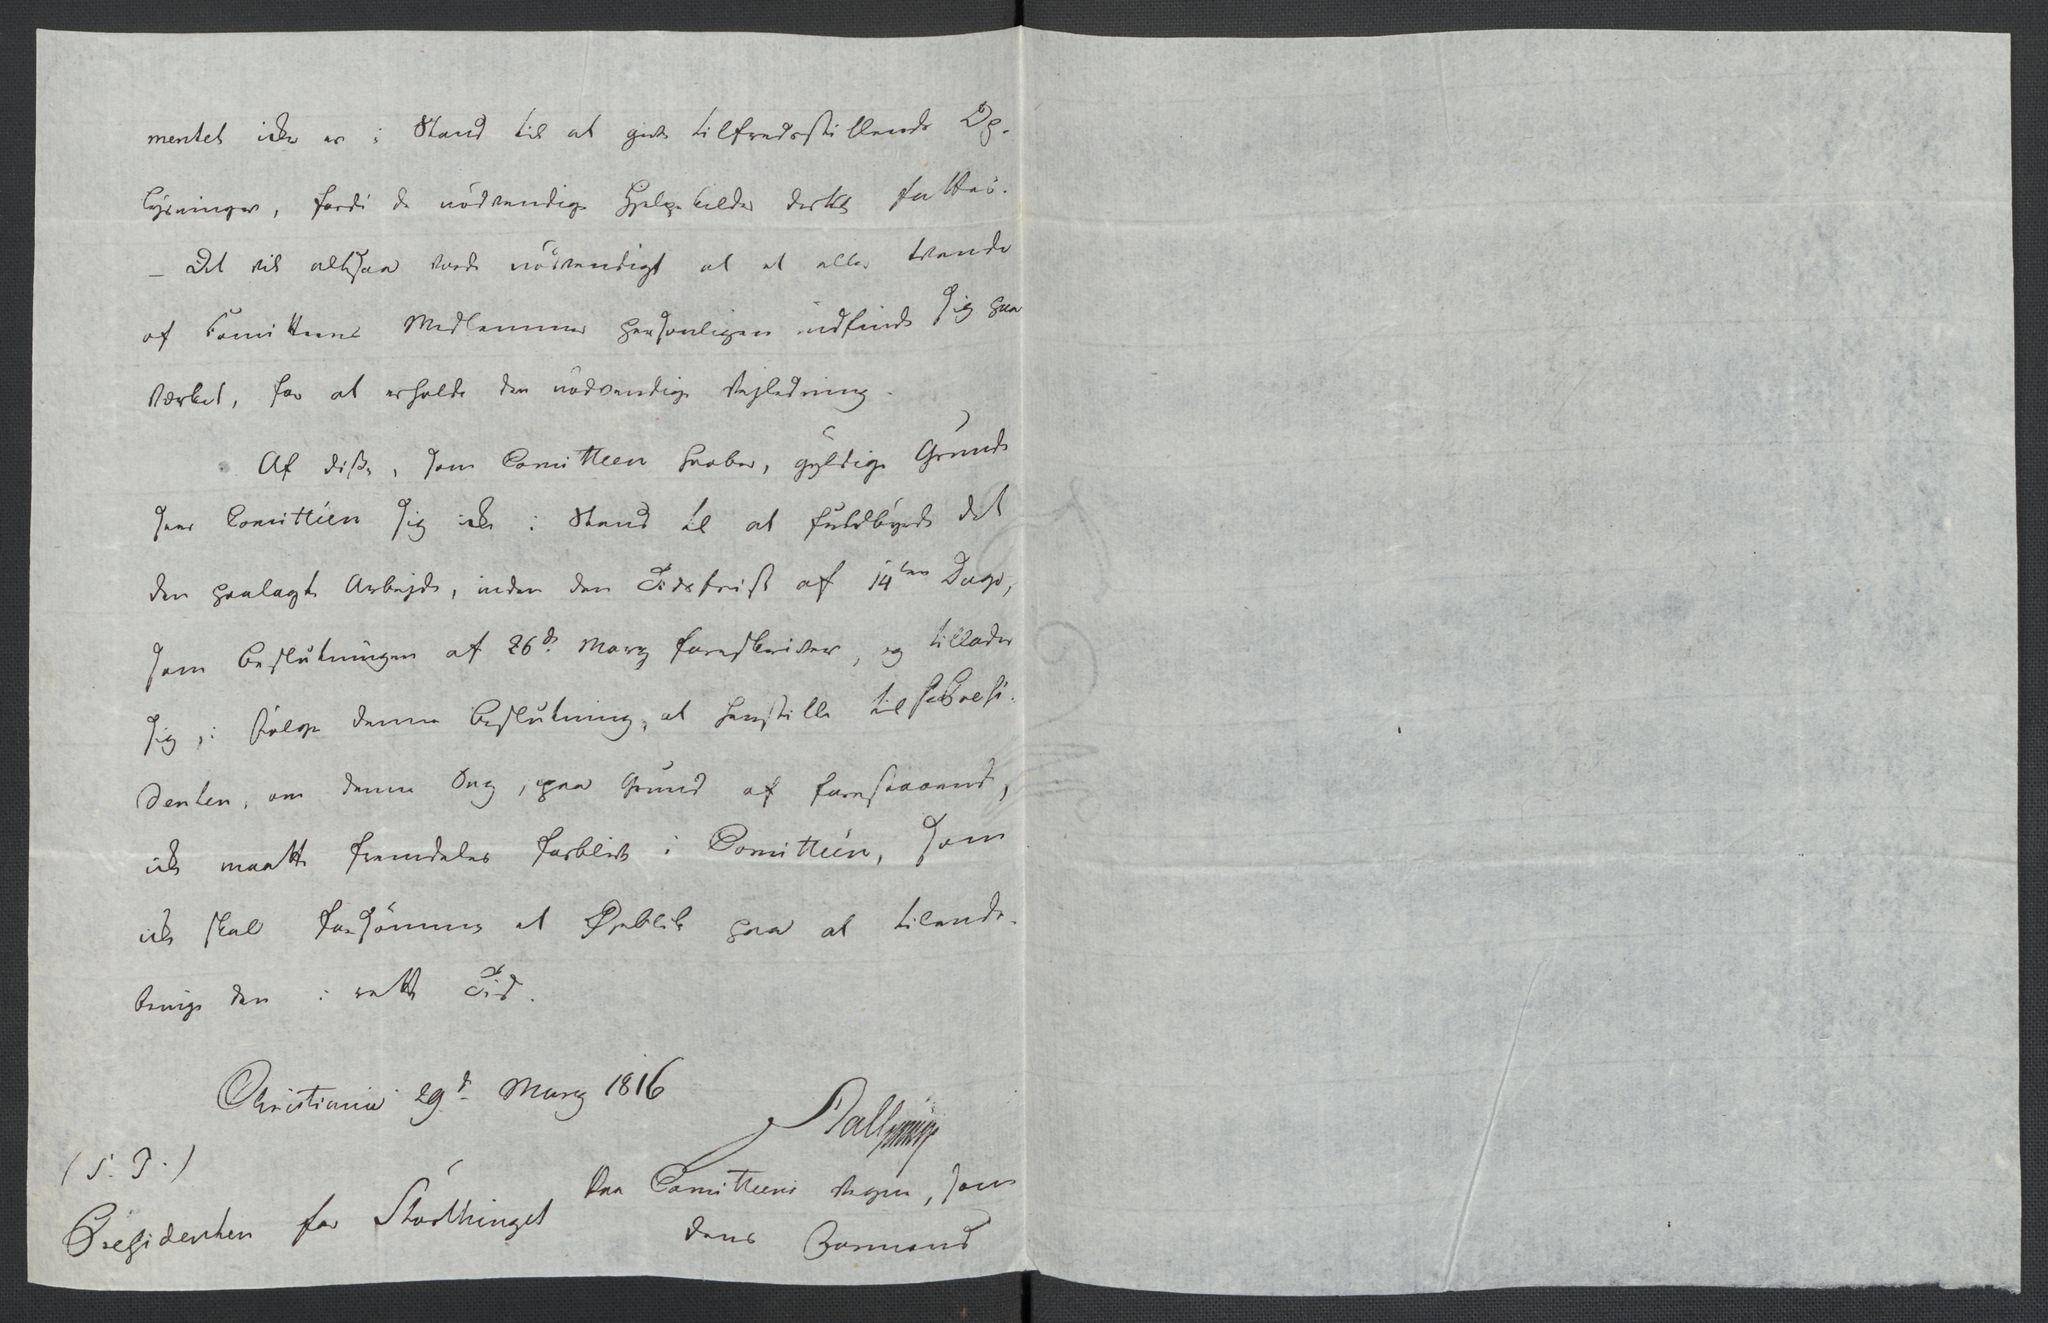 mentet ikke er i Stand til at give tilfredsstillende Op-
lysninger, fordi de nödvendige Hjelpekilder dertil fattes.
- Det vil altsaa vorde nödvendigt at et eller tvende
af Comitteens Medlemmer personligen indfinde sig paa
Værket, for at erholde den nödvendige Vejledning.
Af disse, som Comitteen haaber, gyldige Grunde
seer Comitteen sig ikke i Stand til at fuldbyrde det
den paalagte Arbejde, inden den Tidsfrist af 14ten Dage,
som Beslutningen af 26de Marz foreskriver, og tillader
sig, i Fölge denne Beslutning, at henstille til Præsi-
denten, om denne Sag, paa Grund af forestaaende,
ikke maatte fremdeles forblive i Comitteen, som
ikke skal forsömme et Öjeblik paa at tilende-
bringe den i rette Tid.
Christiania 29de Marz 1816
(S. T.)
Præsidenten for Storthinget
Paa Comitteens Vegne, som
dens Formand